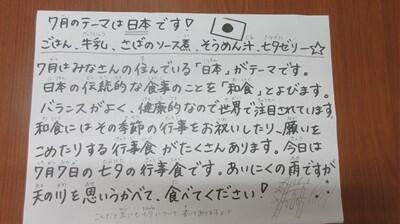 7月のテーマは日本です!
ごはん、牛乳、さばのソース煮、そうめん汁、七夕ゼリー☆
7月はみなさんの住んでいる「日本」がテーマです。
日本の伝統的な食事のことを「和食」とよびます。
バランスがよく、健康的なので世界で注目されています。
和食にはその季節の行事をお祝いしたり、願いを
こめたりする行事食がたくさんあります。今日は
7月7日の七夕の行事食です。あいにくの雨ですが
天の川を思いうかべて、食べてください!